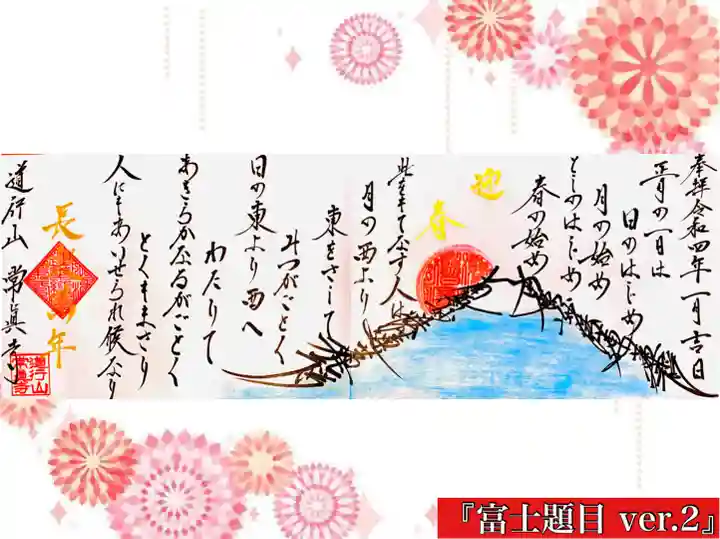 奉拝 令和四年一月吉日
正月の一日は
日のはじめ
月の始め
としのはじめ
春の始め
迎春
此をもてなす人は
月の西より
東をさして
みつがごとく
日の東より西へ
わたりて
あきらかなるがごとく
とくもまさり
人にもあいせられ候なり
長 年
道行山 常眞寺
『富士題目 ver.2』